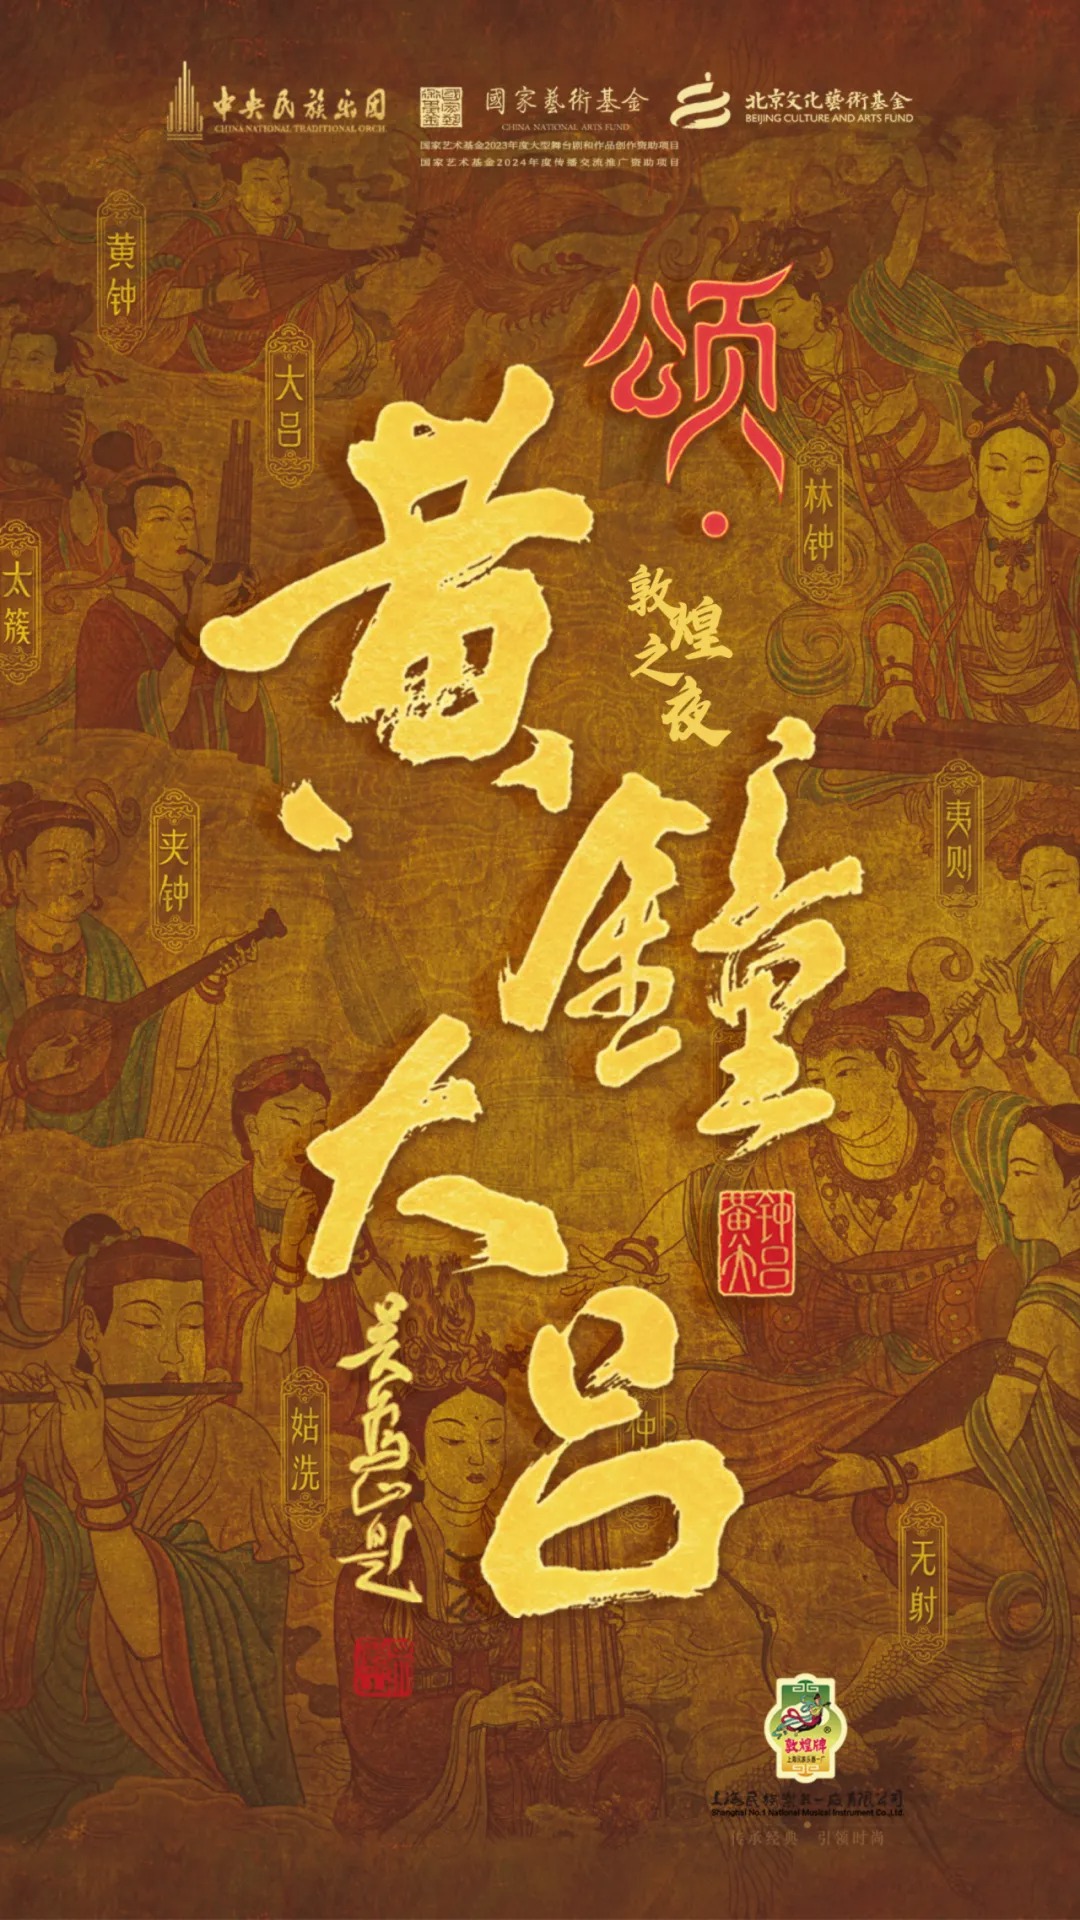 中央民族乐团
CHINA NATIONAL TRADITIONAL ORCH.
國家藝術基金
CHINA NATIONAL ARTS FUND
国家艺术基金2023年度大型舞台剧和作品创作资助项目
国家艺术基金2024年度传播交流推广资助项目
北京文化藝術基金
BEIJING CULTURE AND ARTS FUND
黄钟
大吕
太簇
夹钟
姑洗
仲
林钟
夷则
无射
颂·
敦煌之夜
黄鐘大吕
黄钟大吕
敦煌牌®
上海民族乐器一厂
上海民族乐器一厂有限公司
Shanghai No.1 National Musical Instrument Co.,Ltd.
传承经典 引领时尚